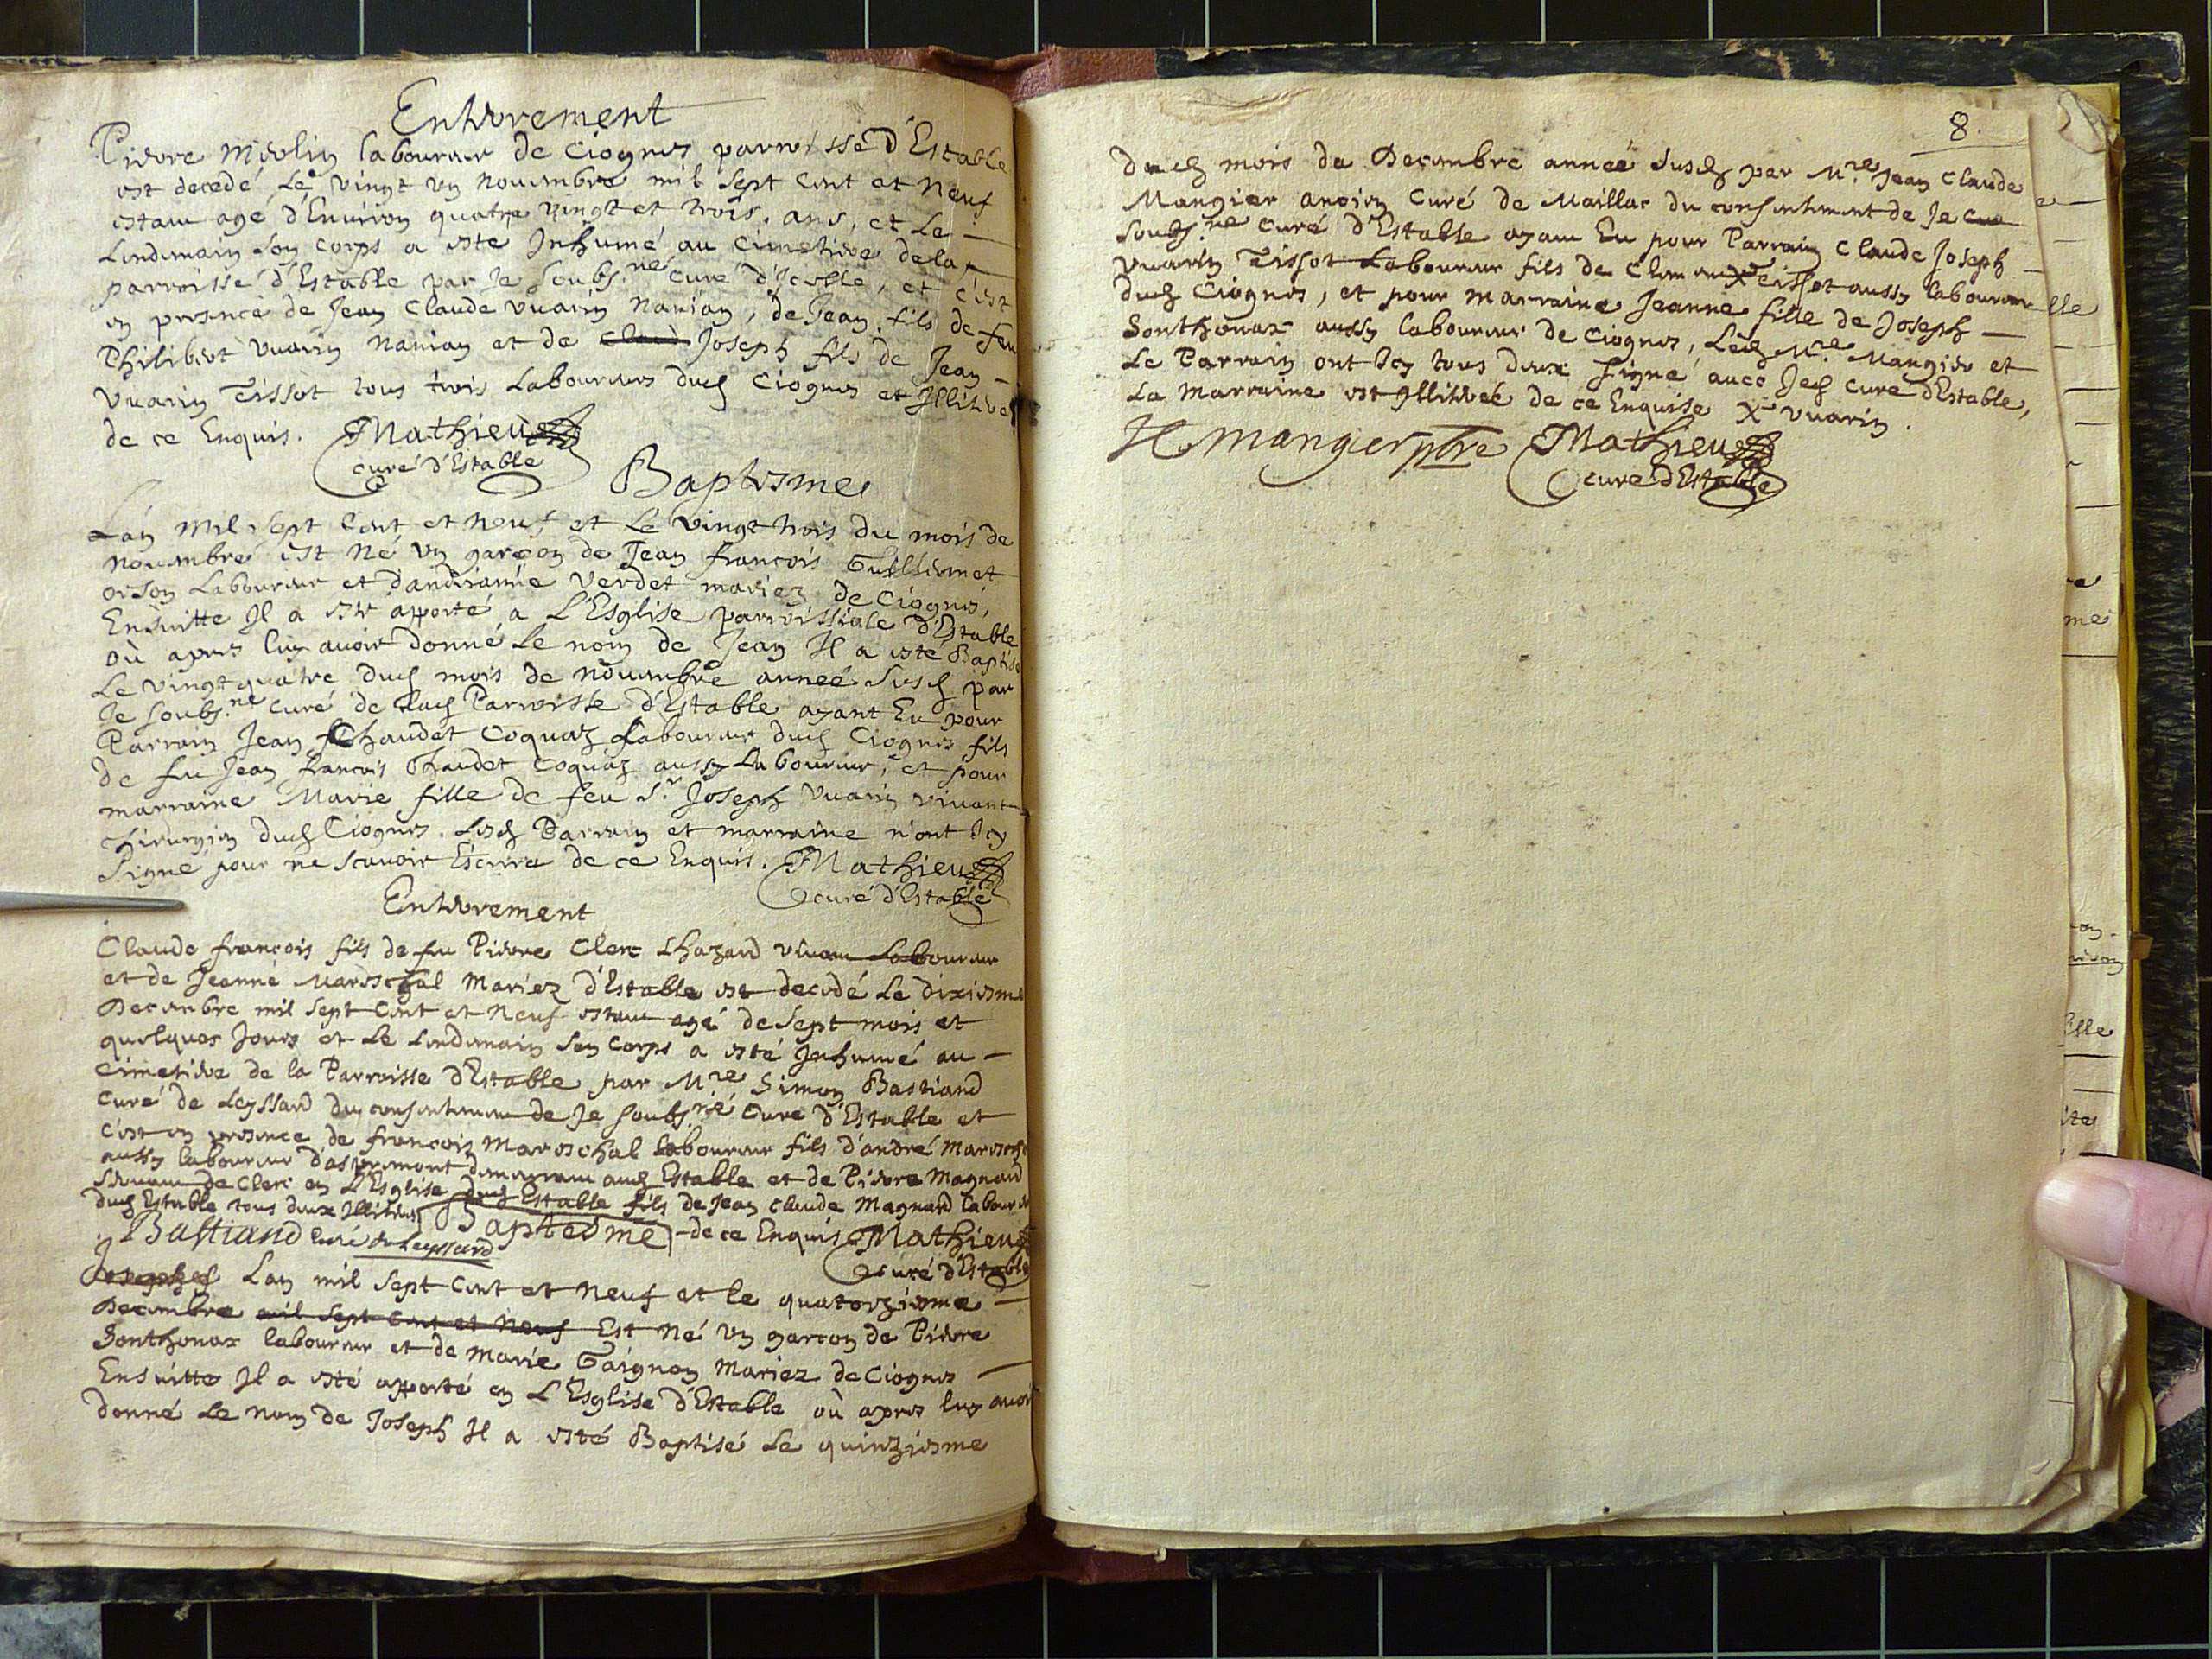 Enterrement
Pierre Merlin laboureur de Ciognes parroisse d'Estable
est decedé Le vingt un nouembre mil sept cent et neuf
estant agé d'Enuiron quatre vingt et trois ans, et Le
Lendemain son corps a esté Inhumé au Cimetiere de la
parroisse d'Estable par Je soubs.né curé d'Icelle, et c'est
en presence de Jean Claude Vuarin Nanian, de Jean fils de feu
Philibert Vuarin Nanian et de Claù Joseph fils de Jean
Vuarin Tissot tous trois Laboureurs dud Ciognes et Jlliteres
de ce Enquis. Mathieu
curé d'Estable
Baptesme
L'an mil sept cent et neuf et Le vingt trois du mois de
nouembre est né un garçon de Jean françois Guilliermet
orson Laboureur et d'andrianne Verdet mariez de Ciognes,
Ensuitte Jl a esté apporté a L'Esglise parroissiale d'Estable
où apres luy auoir donné Le nom de Jean Jl a esté Baptisé
Le vingt quatre dud mois de nouembre année susd par
Je soubs.né curé de lad Parroisse d'Estable ayant Eu pour
Parrain Jean Chaudet Coquaz Laboureur dud Ciognes fils
de feu Jean francois Chaudet Coquaz aussy Laboureur, et pour
marraine Marie fille de feu S.r Joseph Vuarin viuant
chirurgien dud Ciognes. Lesd Parrain et marraine n'ont Icy
signé pour ne scauoir Escrire de ce Enquis. Mathieu
curé d'Estable
Enterrement
Claude françois fils de feu Pierre Clerc Lhazard viuant Laboureur
et de Jeanne Mareschal Mariez d'Estable est decedé Le dixiesme
Decembre mil sept cent et neuf estant agé de sept mois et
quelques Jours et Le Lendemain son corps a esté Jnhumé au
Cimetiere de la Parroisse d'Estable par M.re Simon Bastiand
Curé de Leyssard du consentement de Je soubs.né Curé d'Estable et
c'est en presence de francois Mareschal laboureur fils d'andré Mareschal
aussy laboureur d'aspremont demeurant aud Estable et de Pierre Magnard
seruant de Clerc en L'Esglise dud Estable fils de Jean Claude Magnard laboureur
dud Estable tous deux Jlliteres de ce Enquis Mathieu
Bastiand Curé de Leyssard
curé d'Estable
Baptesme
Josephes Lan mil sept cent et neuf et le quatorziesme
Decembre mil sept cent et neuf Est né un garcon de Pierre
Sonthonax laboureur et de Marie Gaignon Mariez de Ciognes
Ensuitte Jl a esté apporté en L'Esglise d'Estable où apres luy auoir
donné Le nom de Joseph Jl a esté Baptisé Le quinziesme
8.
dud mois de Decembre année susd par M.re Jean Claude
Mangier ancien Curé de Maillac du consentement de Je cu
soubs.né Curé d'Estable ayant Eu pour Parrain Claude Joseph
Vuarin Tissot Laboureur fils de Tissot aussy laboureur
dud Ciognes, et pour marraine Jeanne fille de Joseph
Sonthonax aussy laboureur de Ciognes, Led M.re Mangier et
Le Parrain ont Icy tous deux signé auec Jed curé d'Estable,
La marraine est Jlliterée de ce Enquise X Vuarin.
Mangier pbre Mathieu
curé d'Estable